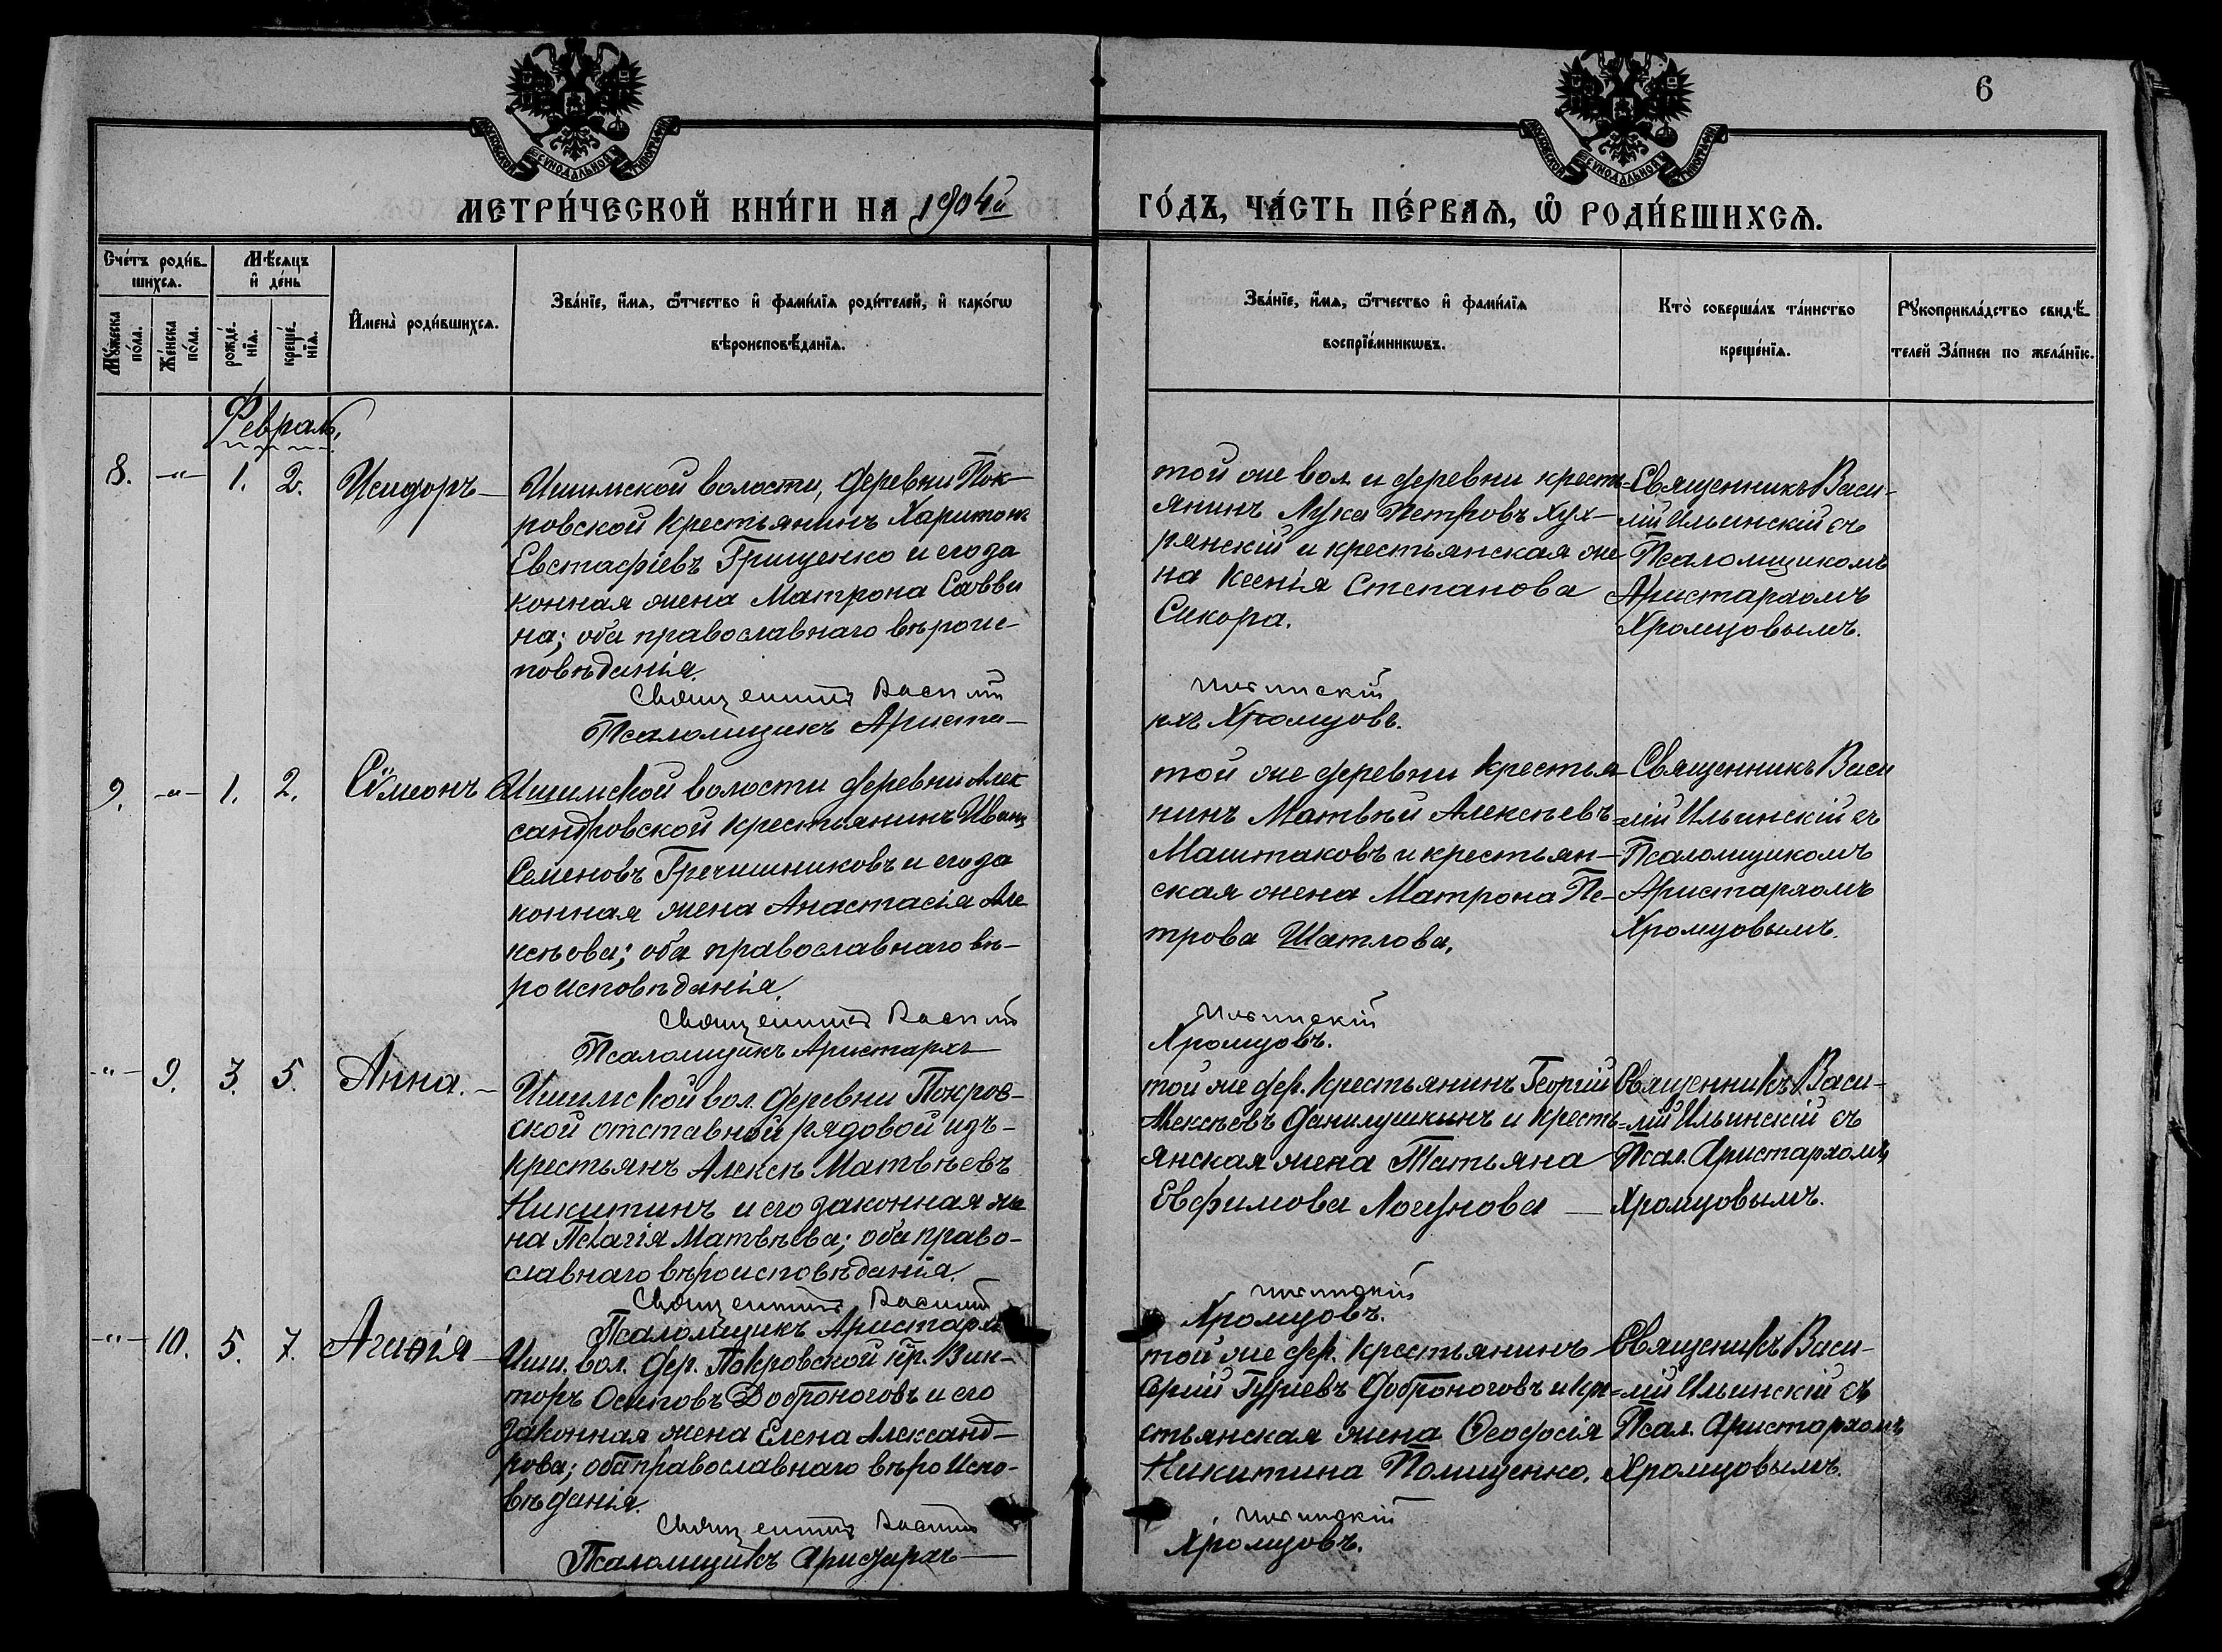 6
МОСКОВСКОЙ СѴНОДАЛЬНОЙ ТИПОГРАФІИ
МОСКОВСКОЙ СѴНОДАЛЬНОЙ ТИПОГРАФІИ
МЕТРИ́ЧЕСКОЙ КНИ́ГИ НА 1904й
ГО́ДЪ, ЧА́СТЬ ПЕ́РВАѦ, Ѿ РОДИ́ВШИХСѦ.
Сче́тъ роди́в-
шихсѧ.
Мѣ́сѧцъ
и҆ де́нь
Мꙋ́жеска
по́ла.
Же́нска
по́ла.
рожде́-
нїѧ.
креще́-
нїѧ.
И҆мена̀ роди́вшихсѧ.
Зва́нїе, и҆́мѧ, ѻ҆́тчество и҆ фами́лїѧ роди́телей, и҆ како́гѡ
вѣроисповѣ́данїѧ.
Зва́нїе, и҆́мѧ, ѻ҆́тчество и҆ фами́лїѧ
воспрїе́мникѡвъ.
Кто̀ соверша́лъ та́инство
креще́нїѧ.
Рꙋкоприкла́дство свидѣ́-
телей За́писи по жела́нїю.
Февраль.
8. -"- 1. 2. Исидоръ-
Ишимской волости, деревни Пок-
ровской крестьянинъ Харитонъ
Евстафіевъ Грищенко и его за
конная жена Матрона Савви
на; оба православнаго вѣроис-
повѣданія.
Священникъ Василій
Псаломщикъ Ариста-
той же вол. и деревни кресть-
янинъ Лука Петровъ Хух-
рянскій и крестьянская же
на Ксенія Степанова
Сикора.
Ильинскій
рхъ Хромцовъ.
Священникъ Васи-
лій Ильинскій съ
Псаломщикомъ
Аристархомъ
Хромцовымъ.
9. -"- 1. 2. Сѵмеонъ
Ишимской волости деревни Алек
сандровской крестьянинъ Иванъ
Семеновъ Гречишниковъ и его за
конная жена Анастасія Але
ксѣева; оба православнаго вѣ-
роисповѣданія.
Священникъ Василій
Псаломщикъ Аристархъ
той же деревни крестья-
нинъ Матвѣй Алексѣевъ
Маштаковъ и крестьян-
ская жена Матрона Пе-
трова Шатлова.
Ильинскій
Хромцовъ.
Священникъ Васи
=лій Ильинскій съ
Псаломщикомъ
Аристархомъ
Хромцовымъ.
-"- 9. 3. 5. Анна.-
Ишимской вол. деревни Покров-
ской отставной рядовой изъ-
крестьянъ Алексѣ Матвѣевъ
Никитинъ и его законная же
на Пелагія Матвѣева; оба право-
славнаго вѣроисповѣданія.
Священникъ Василій
Псаломщикъ Аристархъ
той же дер. крестьянинъ Георгій
Алексѣевъ Данилушкинъ и кресть-
янская жена Татьяна
Евфимова Логунова —
Ильинскій
Хромцовъ.
Священникъ Васи-
=лій Ильинскій съ
Псал. Аристархомъ
Хромцовымъ.
-"- 10. 5. 7. Агаѳія-
Ишим. вол. дер. Покровской кр. Вик-
торъ Осиповъ Доброноговъ и его
законная жена Елена Александ-
рова; оба православнаго вѣроиспо-
вѣданія.
Священникъ Василій
Псаломщикъ Аристархъ —
той же дер. крестьянинъ
Гурiевъ Доброноговъ и кре-
стьянская жена Ѳеодосія
Никитина Полищенко.
Ильинскій
Хромцовъ.
Священикъ Васи-
=лій Ильинскій съ
Псал. Аристархомъ
Хромцовымъ.